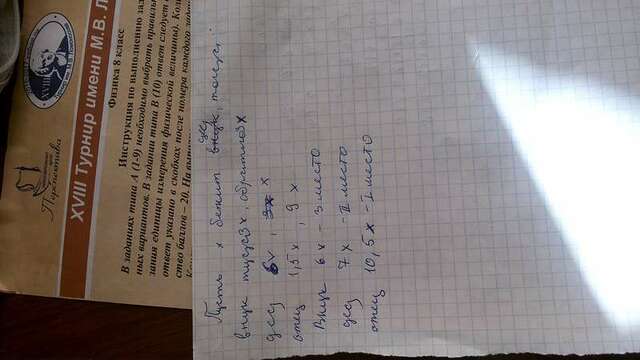 Перспектива
XVIII
XVIII Турнир имени М.В. Л
Физика 8 класс
Инструкция по выполнению зад
В заданиях типа А (1-9) необходимо выбрать правиль
ных вариантов. В задании типа В (10) ответ следует
зания единицы измерения физической величины). Коли
ответ указано в скобках после номера каждого зада
ство баллов – 20. На выполн
Пусть x бежит дед, тогда:
внук туда 3x, обратно 3x
дед 6x, x
отец 1,5x, 9x
Внук 6x - 3 место
дед 7x - II место
отец 10,5x - I место